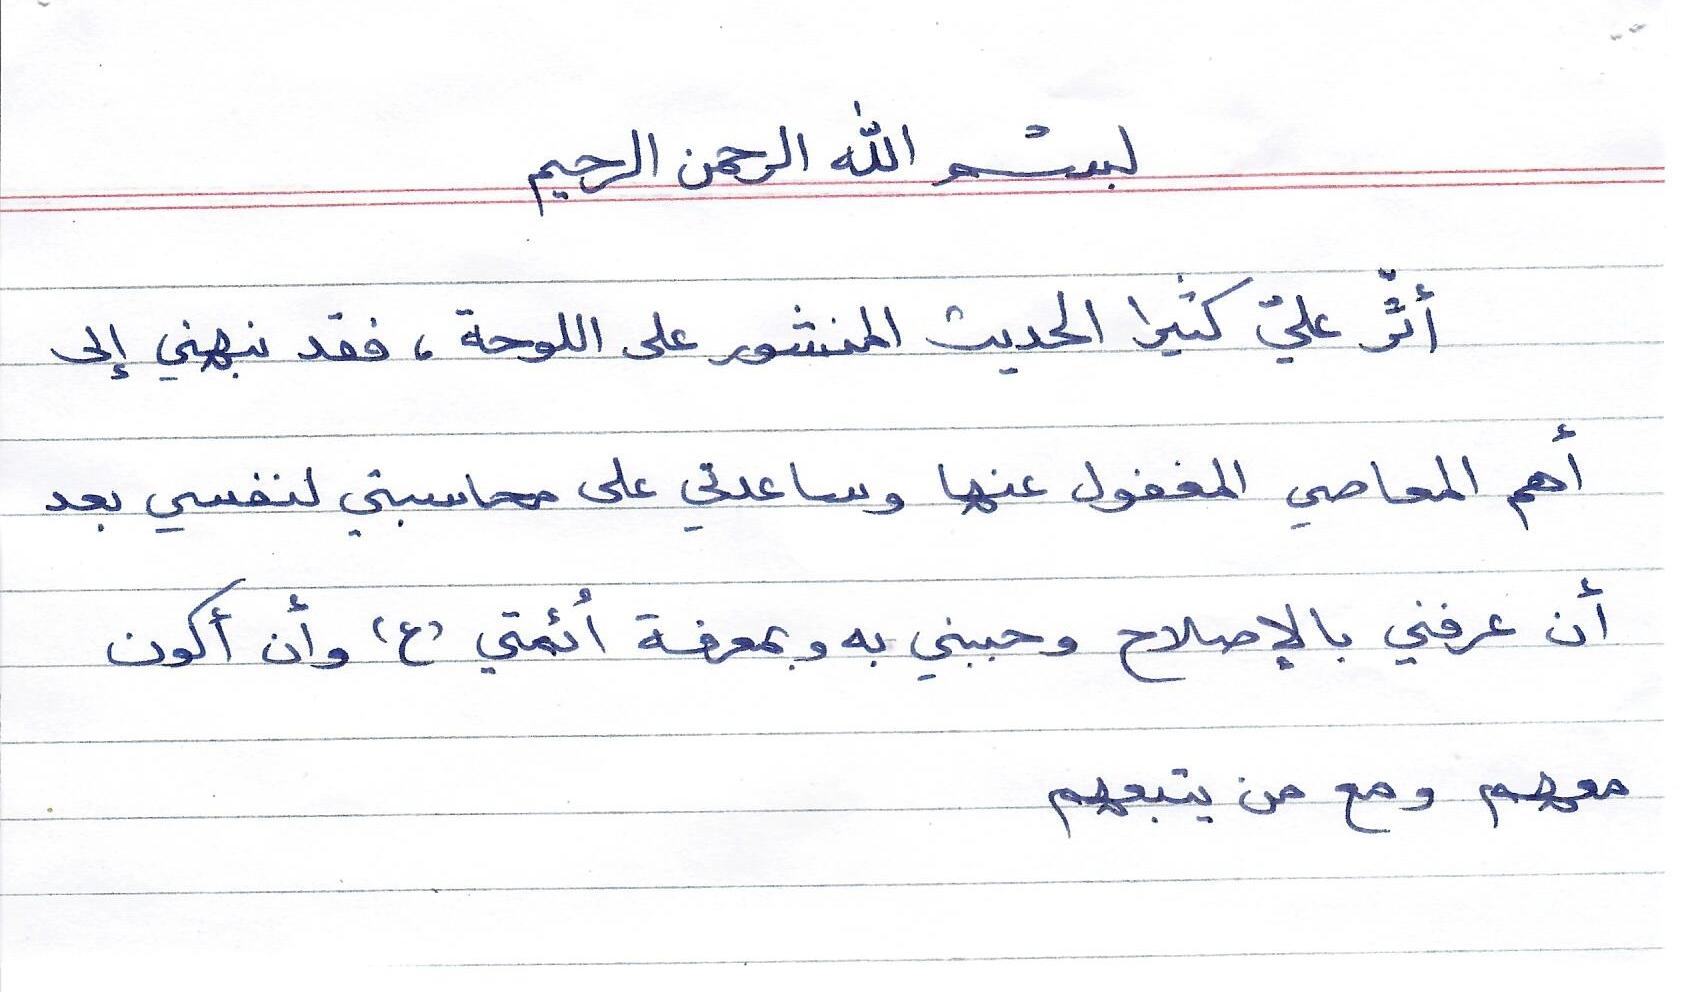 بسم الله الرحمن الرحيم
أثّر عليّ كثيرا الحديث المنشور على اللوحة ، فقد نبهني إلى
أهم المعاصي المغفول عنها وساعدني على محاسبتي لنفسي بعد
أن عرفني بالإصلاح وحببني به وبمعرفة أئمتي (ع) وأن أكون
معهم ومع من يتبعهم